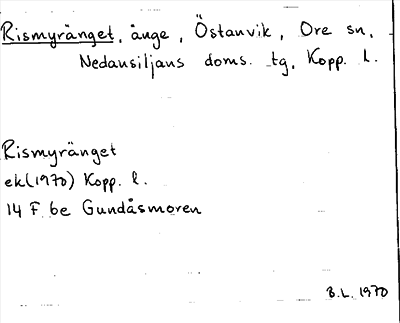 Rismyränget, änge, Östanvik, Ore sn,
Nedansiljans doms. tg, Kopp. l.
Rismyränget
ek(1970) Kopp. l.
14 F 6e Gundåsmoren
B.L. 1970